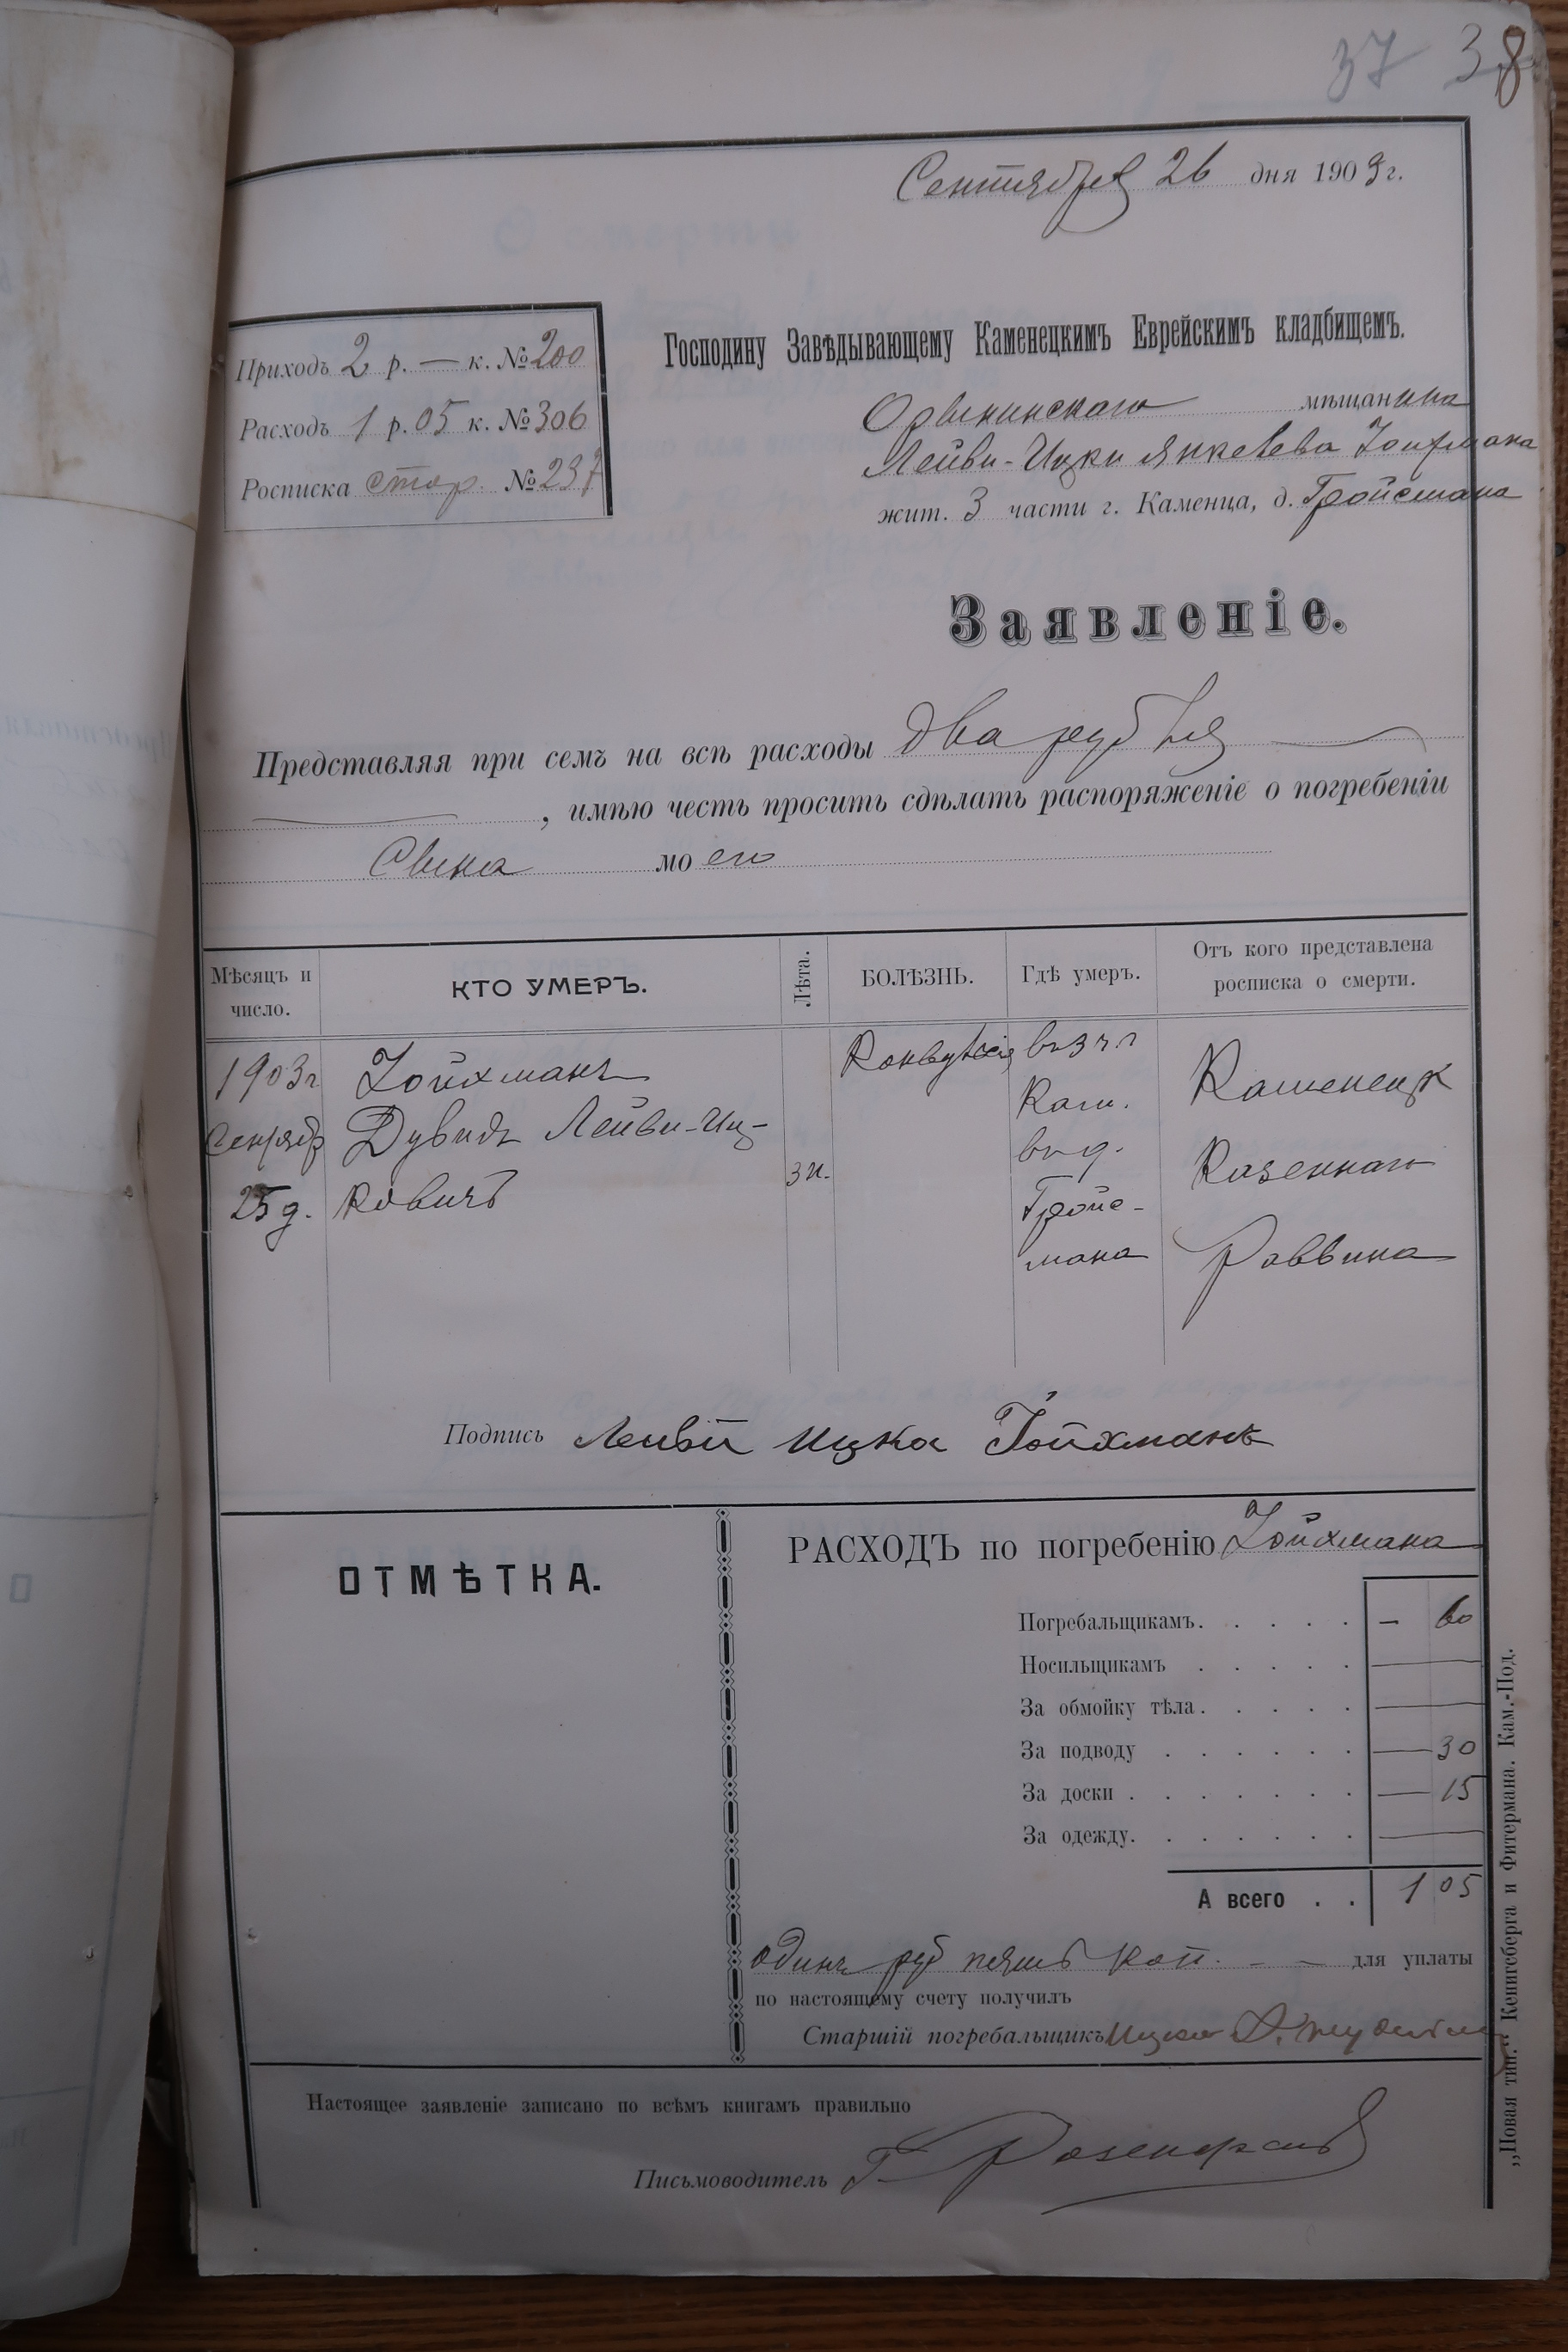 37 38
Сентября 26 дня 1903 г.
Приходъ 2 р. — к. № 200
Расходъ 1 р. 05 к. № 306
Росписка стор. № 237
Господину Завѣдывающему Каменецкимъ Еврейскимъ кладбищемъ.
Орынинскаго мѣщанина
Лейви-Ицки Янкелева Гойхмана
жит. 3 части г. Каменца, д. Гройсмана
Заявленіе.
Представляя при семъ на всѣ расходы два рубля
, имѣю честь просить сдѣлать распоряженіе о погребеніи
сына моего
Мѣсяцъ и число. КТО УМЕРЪ. Лѣта. БОЛѢЗНЬ. Гдѣ умеръ. Отъ кого представлена росписка о смерти.
1903 г Гойхманъ Конвульсія въ 3 ч г Каменецк
Сентябр Дувидъ Лейви-Иц- Кам.
въ д. Казеннаго
25 д. ковичъ 3 н. Гройс-
мана Раввина
Подпись Лейви Ицка Гойхманъ
ОТМѢТКА.
РАСХОДЪ по погребенію Гойхмана
Погребальщикамъ. . . . . — 60
Носильщикамъ . . . . . —
За обмойку тѣла. . . . . —
За подводу . . . . . . — 30
За доски . . . . . . . — 15
За одежду. . . . . . . —
А всего . . 1 05
одинъ руб пять коп. - – для уплаты
по настоящему счету получилъ
Старшій погребальщикъ Ицко
Настоящее заявленіе записано по всѣмъ книгамъ правильно
Письмоводитель
„Новая тип.“ Кенигсберга и Фитермана. Кам.-Под.